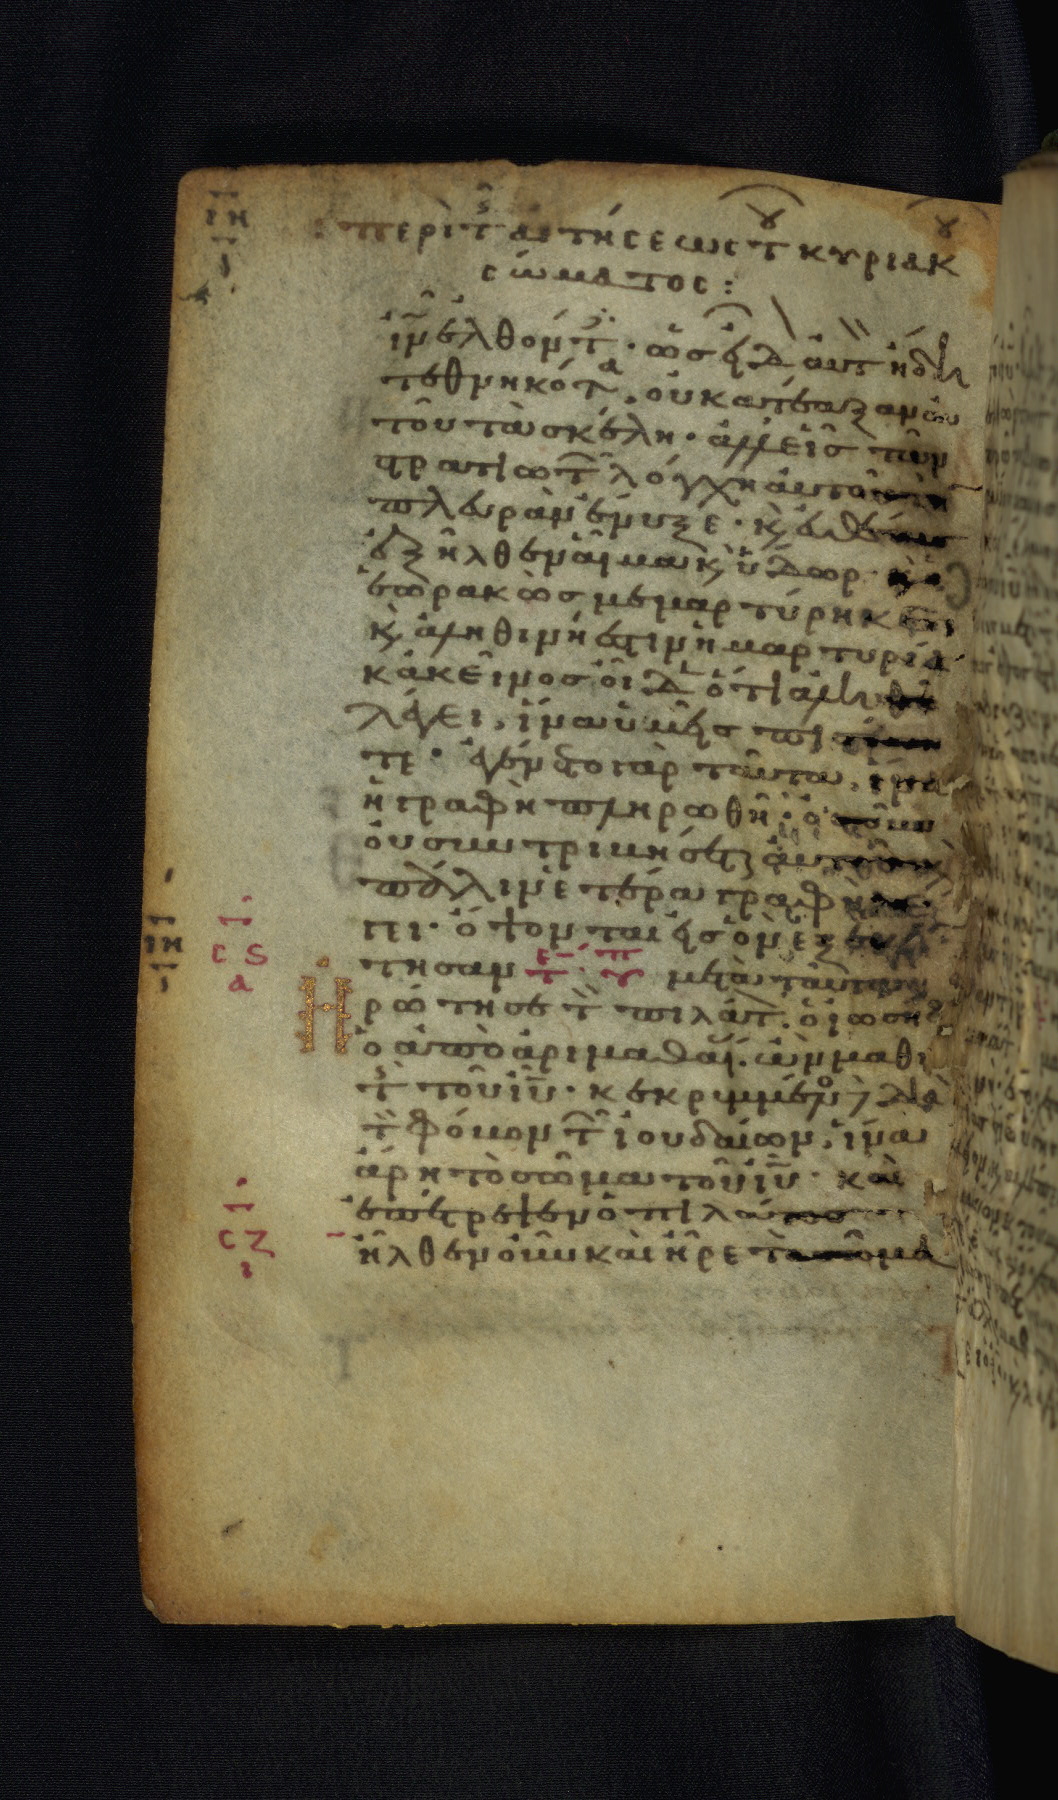 ιη
: περὶ τ αἰτήσεως τ κυριακ
σώματος :
ιν ἐλθόντ · ὡς εἶδ αὐτ ἤδη
τεθνηκότα, οὐ κατέαξαν αὐ
τοῦ τὰ σκέλη · ἀλλ εἷς τῶν
στρατιωτ λόγχη αὐτοῦ τὴν
πλευρὰν ἔνυξε · κ εὐθέως
ἐξῆλθεν αἷμα κ ὕδωρ · κ ὁ
ἑωρακὼς μεμαρτύρηκεν
κ ἀληθινή ἐστιν ἡ μαρτυρία
κἀκεῖνος οἶδ ὅτι ἀλη
λέγει, ἵνα ὑμεῖς πι
τε · ἐγένετο γὰρ ταῦτα, ἵνα
ἡ γραφὴ πληρωθῆ · ὀστοῦν
οὐ συντριβήσεται αὐτοῦ κ
πάλιν ἑτέρα γραφὴ λέ
γει · ὄψονται εἰς ὃν ἐξεκέν
τησαν μετὰ ταῦτα
ιη
ς
α
Ἠρώτησε τ πιλάτ · ὁ ἰωσὴφ
ὁ ἀπὸ ἀριμαθαί · ὢν μαθη
τ τοῦ ιυ · κεκρυμμένο δὲ
τ φόβον τ ἰουδαίων, ἵνα
ἄρη τὸ σῶμα τοῦ ιυ · καὶ
ἐπέτρεψεν ὁ πιλάτος
σζ
ι
ἦλθεν οὖν καὶ ἦρε τὸ σῶμα